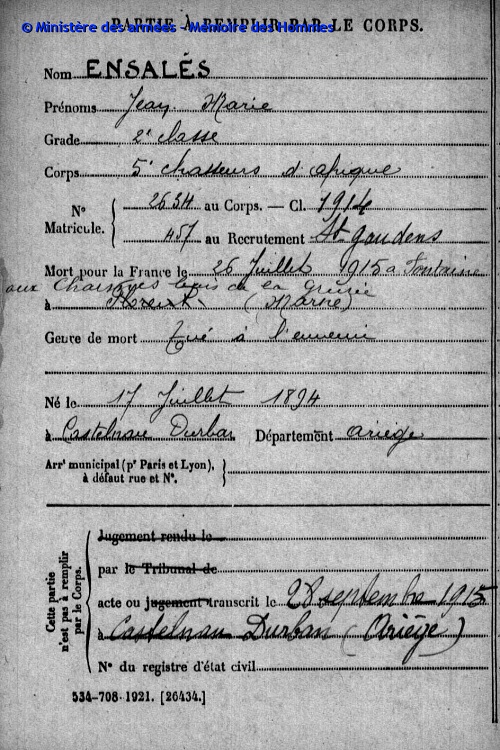 PARTIE À REMPLIR PAR LE CORPS.
© Ministère des armées - Mémoire des Hommes
Nom ENSALÉS
Prénoms Jean Marie
Grade 2e classe
Corps 5e chasseurs d'afrique
No Matricule. { 2634 au Corps. — Cl. 1914
457 au Recrutement St gaudens
Mort pour la France le 26 Juillet 1915 a Fontaine
aux Charmes bois de la Grurie
à Florent (Marne)
Genre de mort Tué à l'ennemi
Né le 17 Juillet 1894
à Castelnau Durban Département ariège
Arrt municipal (pr Paris et Lyon),
à défaut rue et No.
Cette partie n'est pas à remplir par le Corps.
Jugement rendu le
par le Tribunal de
acte ou jugement transcrit le 28 septembre 1915
à Castelnau Durban (Ariège)
No du registre d'état civil
534-708-1921. [26434.]